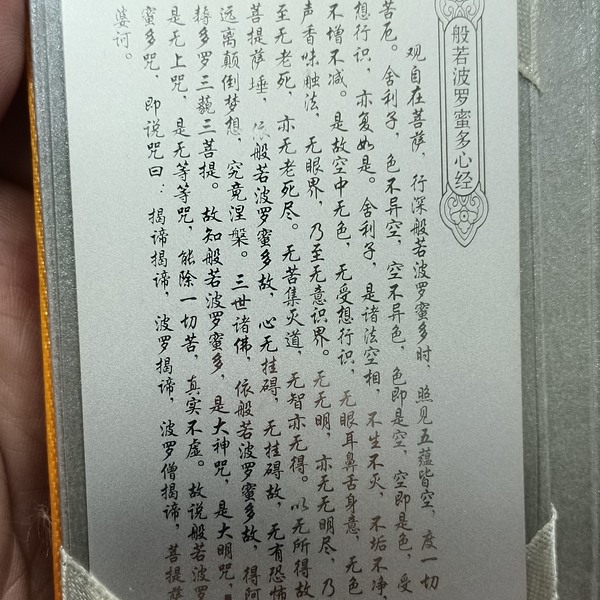 般若波罗蜜多心经
观自在菩萨 行深般若波罗蜜多时，照见五蕴皆空，度一切
苦厄。舍利子，色不异空，空不异色，色即是空，空即是色，受
想行识，亦复如是。舍利子，是诸法空相，不生不灭，不垢不净，
不增不减。是故空中无色，无受想行识，无眼耳鼻舌身意，无色
声香味触法，无眼界，乃至无意识界。无无明，亦无无明尽，乃
至无老死，亦无老死尽。无苦集灭道，无智亦无得。以无所得故
菩提萨埵，依般若波罗蜜多故，心无挂碍，无挂碍故，无有恐怖
远离颠倒梦想，究竟涅槃。三世诸佛，依般若波罗蜜多故，得阿
耨多罗三藐三菩提。故知般若波罗蜜多，是大神咒，是大明咒，
是无上咒，是无等等咒，能除一切苦，真实不虚。故说般若波罗
蜜多咒，即说咒曰：揭谛揭谛，波罗揭谛，波罗僧揭谛，菩提萨
婆诃。